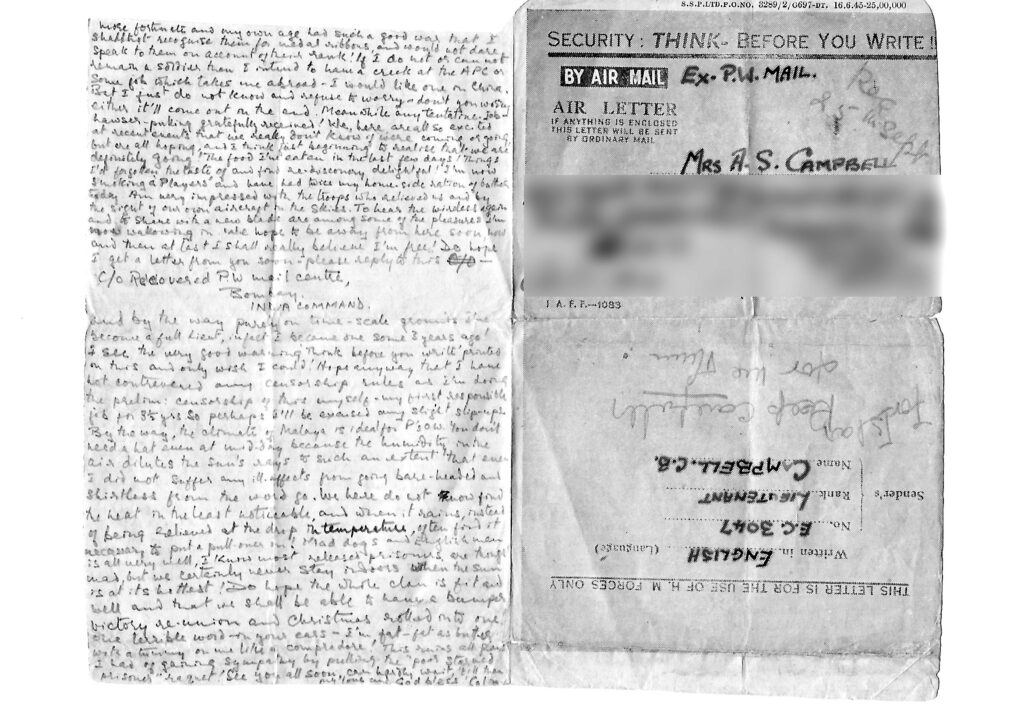 I more fortunate and my own age had such a good war that I
shall not recognise them for medal ribbons, and would not dare
speak to them on account of their rank! If I do not or can not
remain a soldier then I intend to have a crack at the APC or
some job which takes me abroad - I would like one in China.
But I just do not know and refuse to worry - don't you worry
either it'll come out in the end. Meanwhile any tentative job-
hawser-pulling gratefully received! We, here, are all so excited
at recent events that we really don't know if we're coming or going
but are all hoping, and I think just beginning to realise that we are
definitely going! The food I've eaten in the last few days! Things
I'd forgotten the taste of and find re-discovery delightful! I'm now
smoking a Players and have had twice my home-side ration of butter
today. Am very impressed with the troops who relieved us and by
the sight of our own aircraft in the skies. To hear the wireless again
and to shave with a new blade are among some of the pleasures I'm
now wakening on. We hope to be away from here soon now
and then at last I shall really believe I'm free! Do hope
I get a letter from you soon - please reply to this -
C/o Recovered P.W mail centre,
Bombay.
INDIA COMMAND.
And by the way purely on time-scale grounds I've
become a full Lieut, in fact I became one some 3 years ago!
I see the very good warning 'Think before you write' printed
on this and only wish I could! Hope anyway that I have
not contravened any censorship rules as I'm doing
the prelim: censorship of this myself - my first responsible
job for 3½ yrs so perhaps I'll be excused any slight slip-ups.
By the way, the climate of Malaya is ideal for P's O.W. You don't
need a hat even at mid-day because the humidity in the
air dilutes the sun's rays to such an extent that even
I did not suffer any ill-affects from going bare-headed and
shirtless from the word go. We here do not know find
the heat in the least noticeable, and when it rains, instead
of being relieved at the drop in temperature, often find it
necessary to put a pull-over on! Mad dogs and Englishmen
is all very well, I know most released prisoners are thought
mad, but we certainly never stay indoors when the sun
is at its hottest! Do hope the whole clan is fit and
well and that we shall be able to have a bumper
victory re-union and Christmas rolled into one!
One terrible word in your ears - I'm fat - fat as butter
with a tummy on me like a compradore! This ruins all plans
I had of gaining sympathy by pulling the 'poor starved
prisoner' racquet! See you all soon, can hardly wait, till then
my love and God bless Colin
S.S.P.LTD.P.O.NO. 3289/2, G697-DT. 16.6.45-25,00,000
SECURITY: THINK - BEFORE YOU WRITE !!
BY AIR MAIL
EX-P.W. MAIL.
AIR LETTER
IF ANYTHING IS ENCLOSED
THIS LETTER WILL BE SENT
BY ORDINARY MAIL
MRS A. S. CAMPBELL
I. A. F. F.—1083
Keep Carefully
for me
Sender's
Name CAMPBELL. C.B.
Rank LIEUTENANT
No. E.C. 3047
Written in ENGLISH (Language)
THIS LETTER IS FOR THE USE OF H. M FORCES ONLY